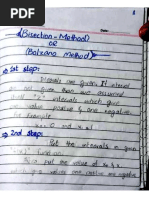 (Bisection-Method)
OR
(Bolzano Method)
⇒ 1st step:
Intervals are given. If interval
are not given then we assumed
the intervals which give
one value positive & one negative.
For example.
x=0 and x=1
⇒ 2nd step:
Put the intervals in given
function.
Put the value of x₀ &
gives one positive and one negative